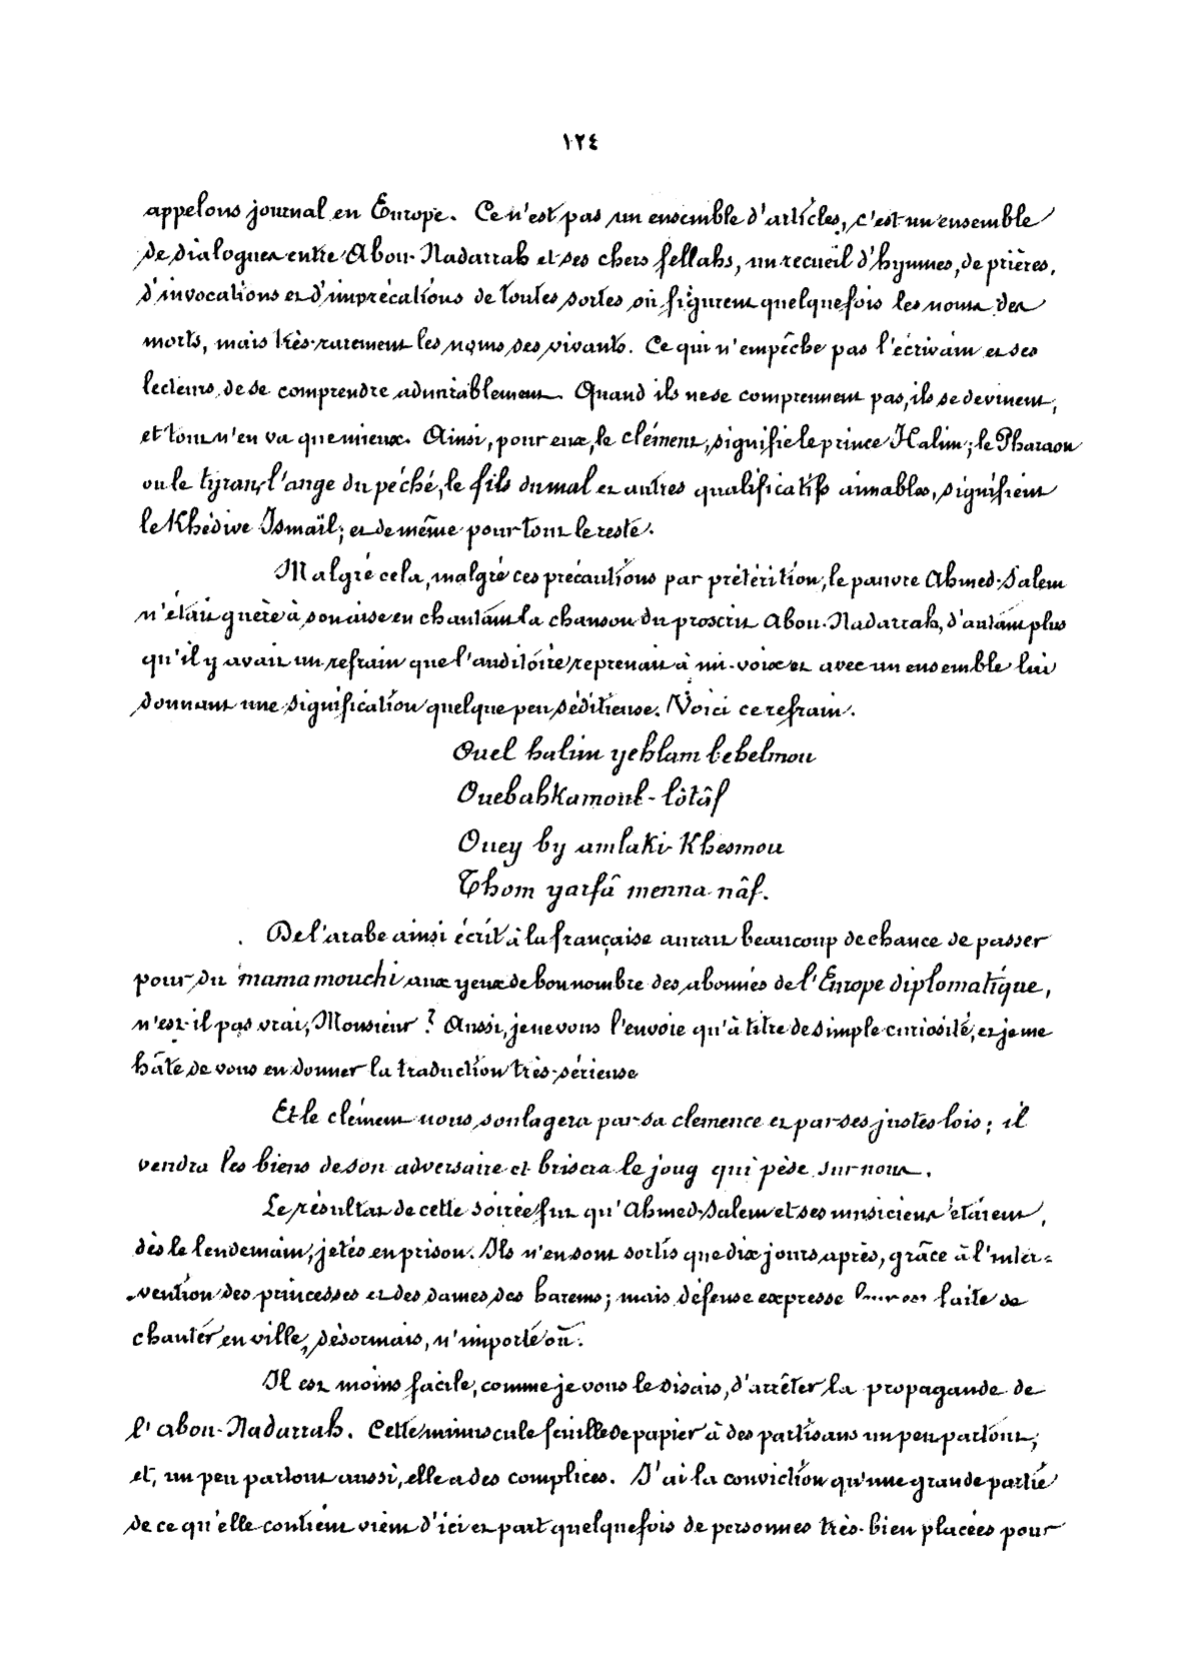 ١٢٤
appelons journal en Europe. Ce n'est pas un ensemble d'articles, c'est un ensemble
de dialogues entre Abou-Nadarrah et ses chers fellahs, un recueil d'hymnes, de prières,
d'invocations et d'imprécations de toutes sortes où figurent quelquefois les noms des
morts, mais très-rarement les noms des vivants. Ce qui n'empêche pas l'écrivain et ses
lecteurs de se comprendre admirablement. Quand ils ne se comprennent pas, ils se devinent,
et tout n'en va que mieux. Ainsi, pour eux, le clément, signifie le prince Halim; le Pharaon
ou le tyran, l'ange du péché, le fils du mal et autres qualificatifs aimables, signifient
le Khédive Ismaïl; et de même pour tout le reste.
Malgré cela, malgré ces précautions par prétérition, le pauvre Ahmed-Salem
n'était guère à son aise en chantant la chanson du proscrit Abou-Nadarrah, d'autant plus
qu'il y avait un refrain que l'auditoire reprenait à mi-voix et avec un ensemble lui
donnant une signification quelque peu séditieuse. Voici ce refrain.
Ouel halim yehlam bebelmou
Ouebahkamout-lôtâf
Ouey by amlaki Khesmou
Thom yarfâ menna nâf.
De l'arabe ainsi écrit à la française aurait beaucoup de chance de passer
pour du mamamouchi aux yeux de bon nombre des abonnés de l'Europe diplomatique,
n'est-il pas vrai, Monsieur ? Aussi, je ne vous l'envoie qu'à titre de simple curiosité, et je me
hâte de vous en donner la traduction très-sérieuse
Et le clément nous soulagera par sa clemence et par ses justes lois; il
vendra les biens de son adversaire et brisera le joug qui pèse sur nous.
Le résultat de cette soirée fut qu'Ahmed-Salem et ses musiciens étaient,
dès le lendemain, jetés en prison. Ils n'en sont sortis que dix jours après, grâce à l'inter-
vention des princesses et des dames des harems; mais défense expresse leur est faite de
chanter en ville, désormais, n'importe où.
Il est moins facile, comme je vous le disais, d'arrêter la propagande de
l'Abou-Nadarrah. Cette minuscule feuille de papier à des partisans un peu partout;
et, un peu partout aussi, elle a des complices. J'ai la conviction qu'une grande partie
de ce qu'elle contient vient d'ici et part quelquefois de personnes très-bien placées pour